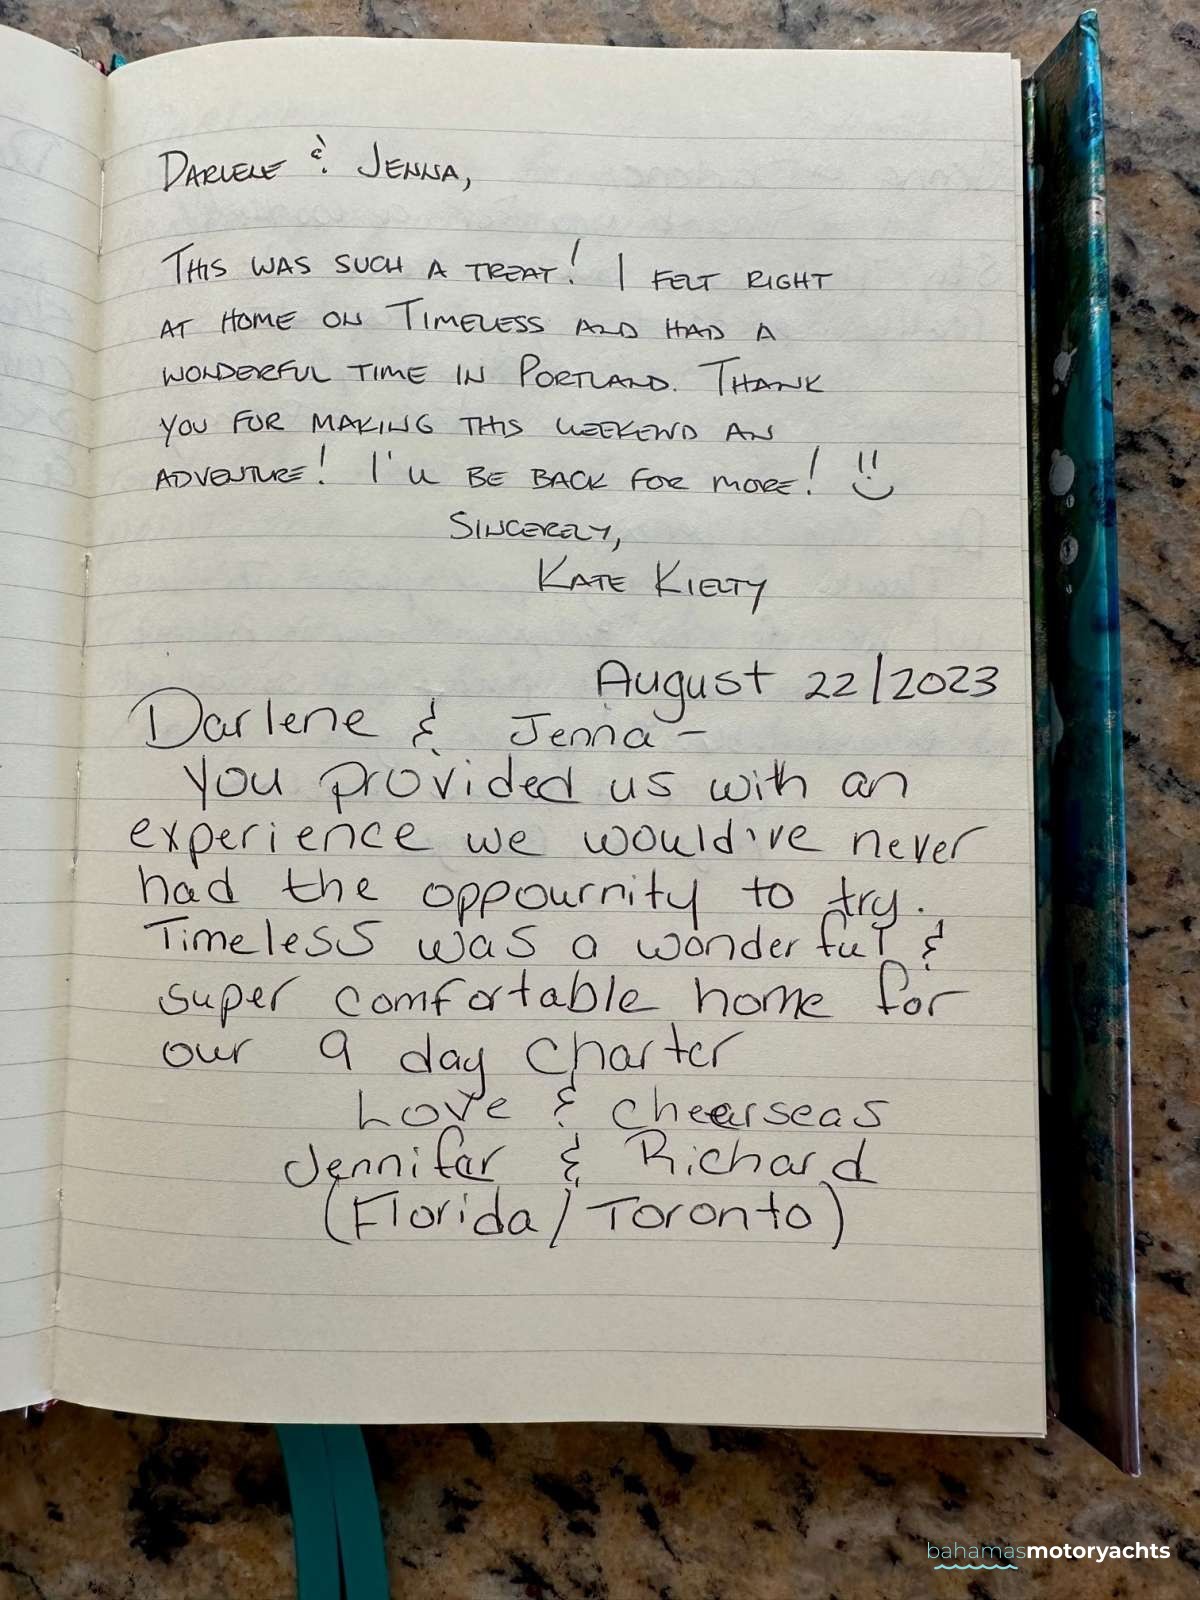 DARLENE & JENNA,
THIS WAS SUCH A TREAT! I FELT RIGHT
AT HOME ON TIMELESS AND HAD A
WONDERFUL TIME IN PORTLAND. THANK
YOU FOR MAKING THIS WEEKEND AN
ADVENTURE! I'LL BE BACK FOR MORE! !!
SINCERELY,
KATE KIELTY
August 22/2023
Darlene & Jenna -
You provided us with an
experience we would've never
had the oppournity to try.
Timeless was a wonderful &
super comfortable home for
our 9 day charter
Love & cheerseas
Jennifer & Richard
(Florida/Toronto)
bahamasmotoryachts